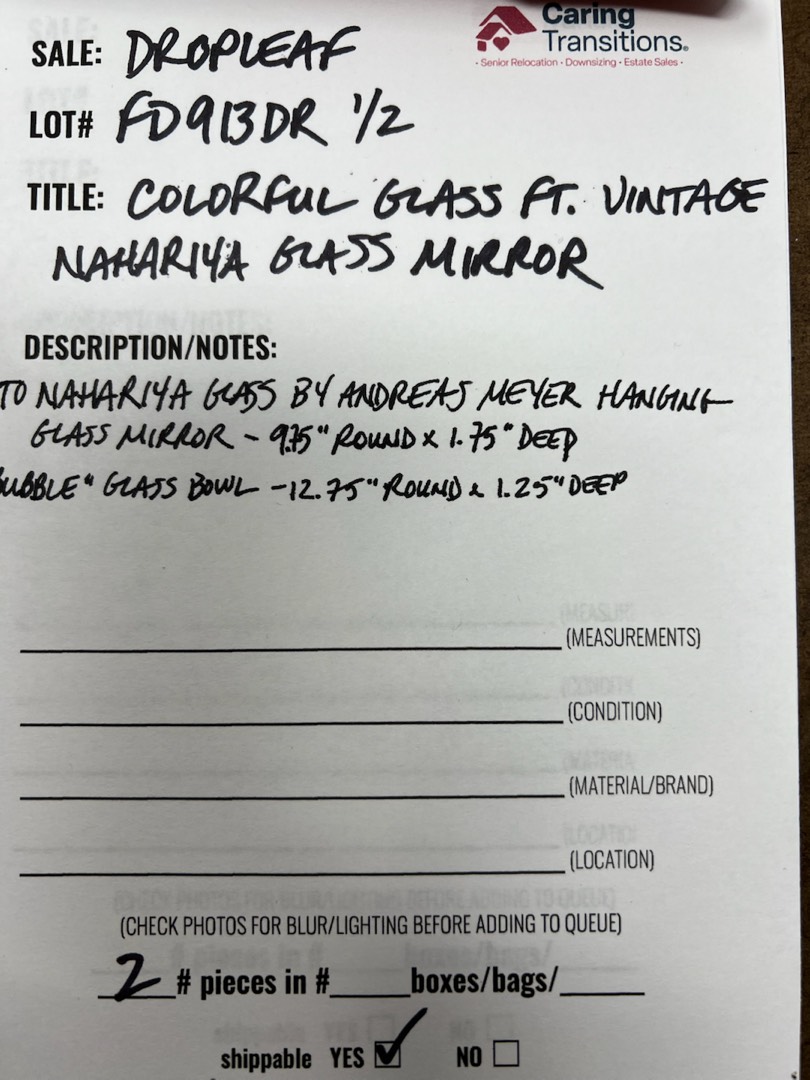 Caring
Transitions®
• Senior Relocation • Downsizing • Estate Sales •
SALE: DROPLEAF
LOT# FD913DR 1/2
TITLE: COLORFUL GLASS FT. VINTAGE
NAHARIYA GLASS MIRROR
DESCRIPTION/NOTES:
TO NAHARIYA GLASS BY ANDREAS MEYER HANGING
GLASS MIRROR - 9.75" ROUND x 1.75" DEEP
BUBBLE" GLASS BOWL - 12.75" ROUND x 1.25" DEEP
(MEASUREMENTS)
(CONDITION)
(MATERIAL/BRAND)
(LOCATION)
(CHECK PHOTOS FOR BLUR/LIGHTING BEFORE ADDING TO QUEUE)
2 # pieces in #____boxes/bags/____
shippable YES ☑ NO ☐